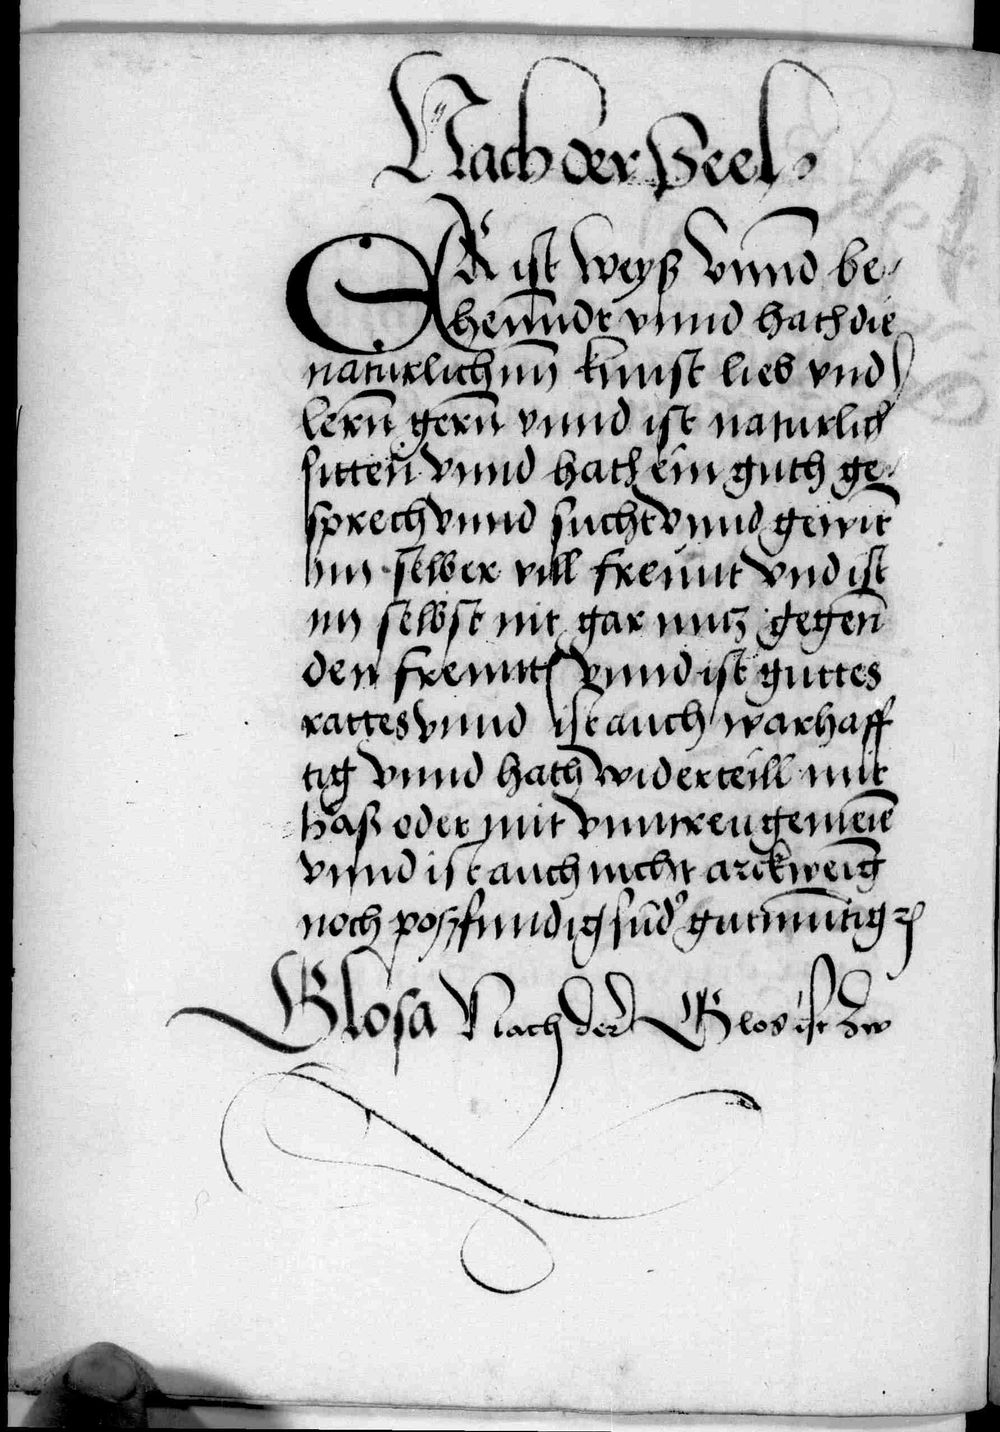 Nach der Seel
ER ist weyß vnnd be-
henndt vnnd hath die
naturlichnn kunst lieb vnd
lernn gernn vnnd ist naturlich
sitten vnnd hath ein guth ge-
sprech vnnd sucht vnnd gewint
im selber vill freunt vnd ist
im selbst nit gar nutz gegen
den freunt vnnd ist guttes
rattes vnnd ist auch warhaff
tig vnnd hath widerteill mit
haß oder mit vnntreu gemeine
vnnd ist auch nicht arckwenig
noch poßfundig sunder gutmuttig
Glosa Nach der Glos ist Zw